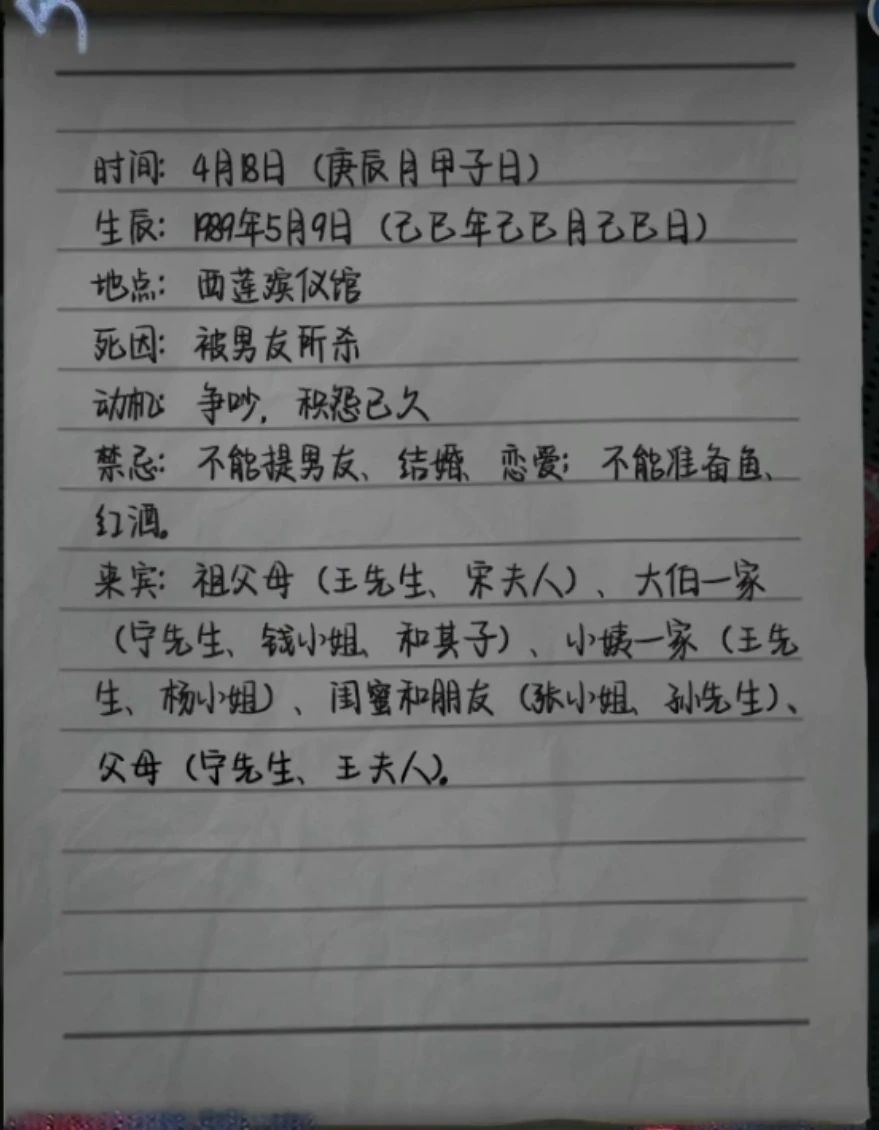 时间: 4月18日 (庚辰月甲子日)
生辰: 1989年5月9日 (己巳年己巳月己巳日)
地点: 西莲殡仪馆
死因: 被男友所杀
动机: 争吵, 积怨已久
禁忌: 不能提男友、结婚、恋爱; 不能准备鱼、
红酒。
来宾: 祖父母 (王先生、宋夫人) 、大伯一家
(宁先生、钱小姐、和其子) 、小姨一家 (王先
生、杨小姐) 、闺蜜和朋友 (张小姐、孙先生)、
父母 (宁先生、王夫人)。